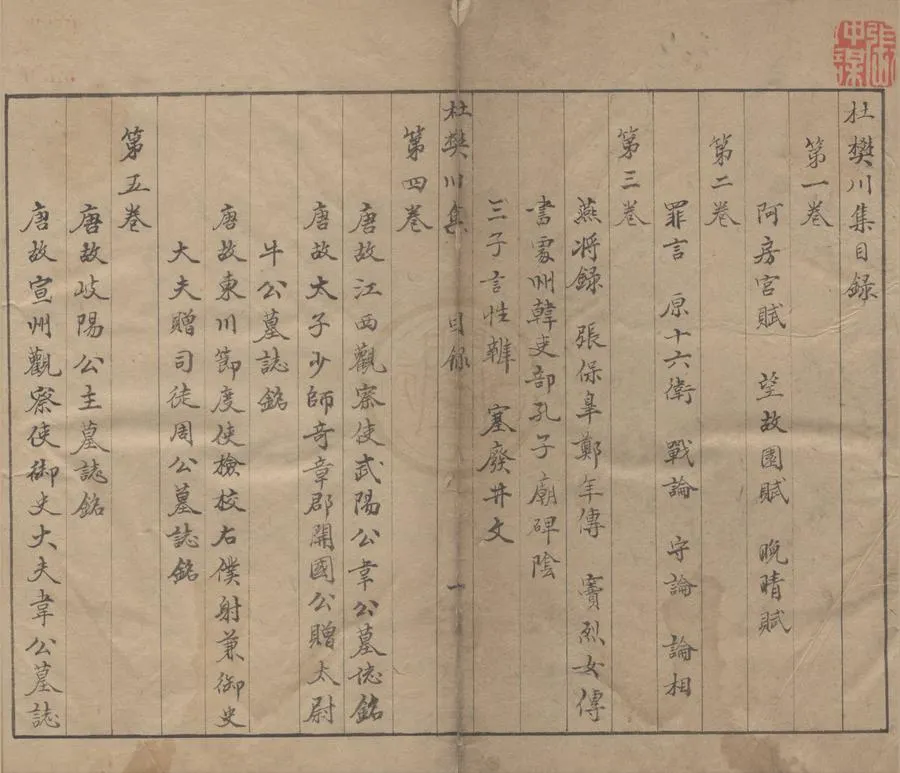 杜樊川集目録
第一卷
阿房宮賦 望故園賦 晚晴賦
第二卷
罪言 原十六衛 戰論 守論 論相
第三卷
燕将録 張保皐鄭年傳 竇烈女傳
書處州韓吏部孔子廟碑陰
三子言性辨 塞廢井文
杜樊川集 目録 一
第四卷
唐故江西觀察使武陽公韋公墓誌銘
唐故太子少師竒章郡開國公贈太尉
牛公墓誌銘
唐故東川節度使檢校右僕射兼御史
大夫贈司徒周公墓誌銘
第五卷
唐故岐陽公主墓誌銘
唐故宣州觀察使御史大夫韋公墓誌